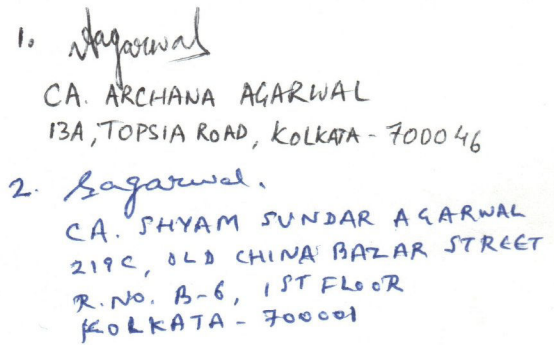 1. Aagarwal
CA. ARCHANA AGARWAL
13A, TOPSIA ROAD, KOLKATA - 700046
2. Sagarwal.
CA. SHYAM SUNDAR AGARWAL
219C, OLD CHINA BAZAR STREET
R. NO. B-6, 1ST FLOOR
KOLKATA - 700001